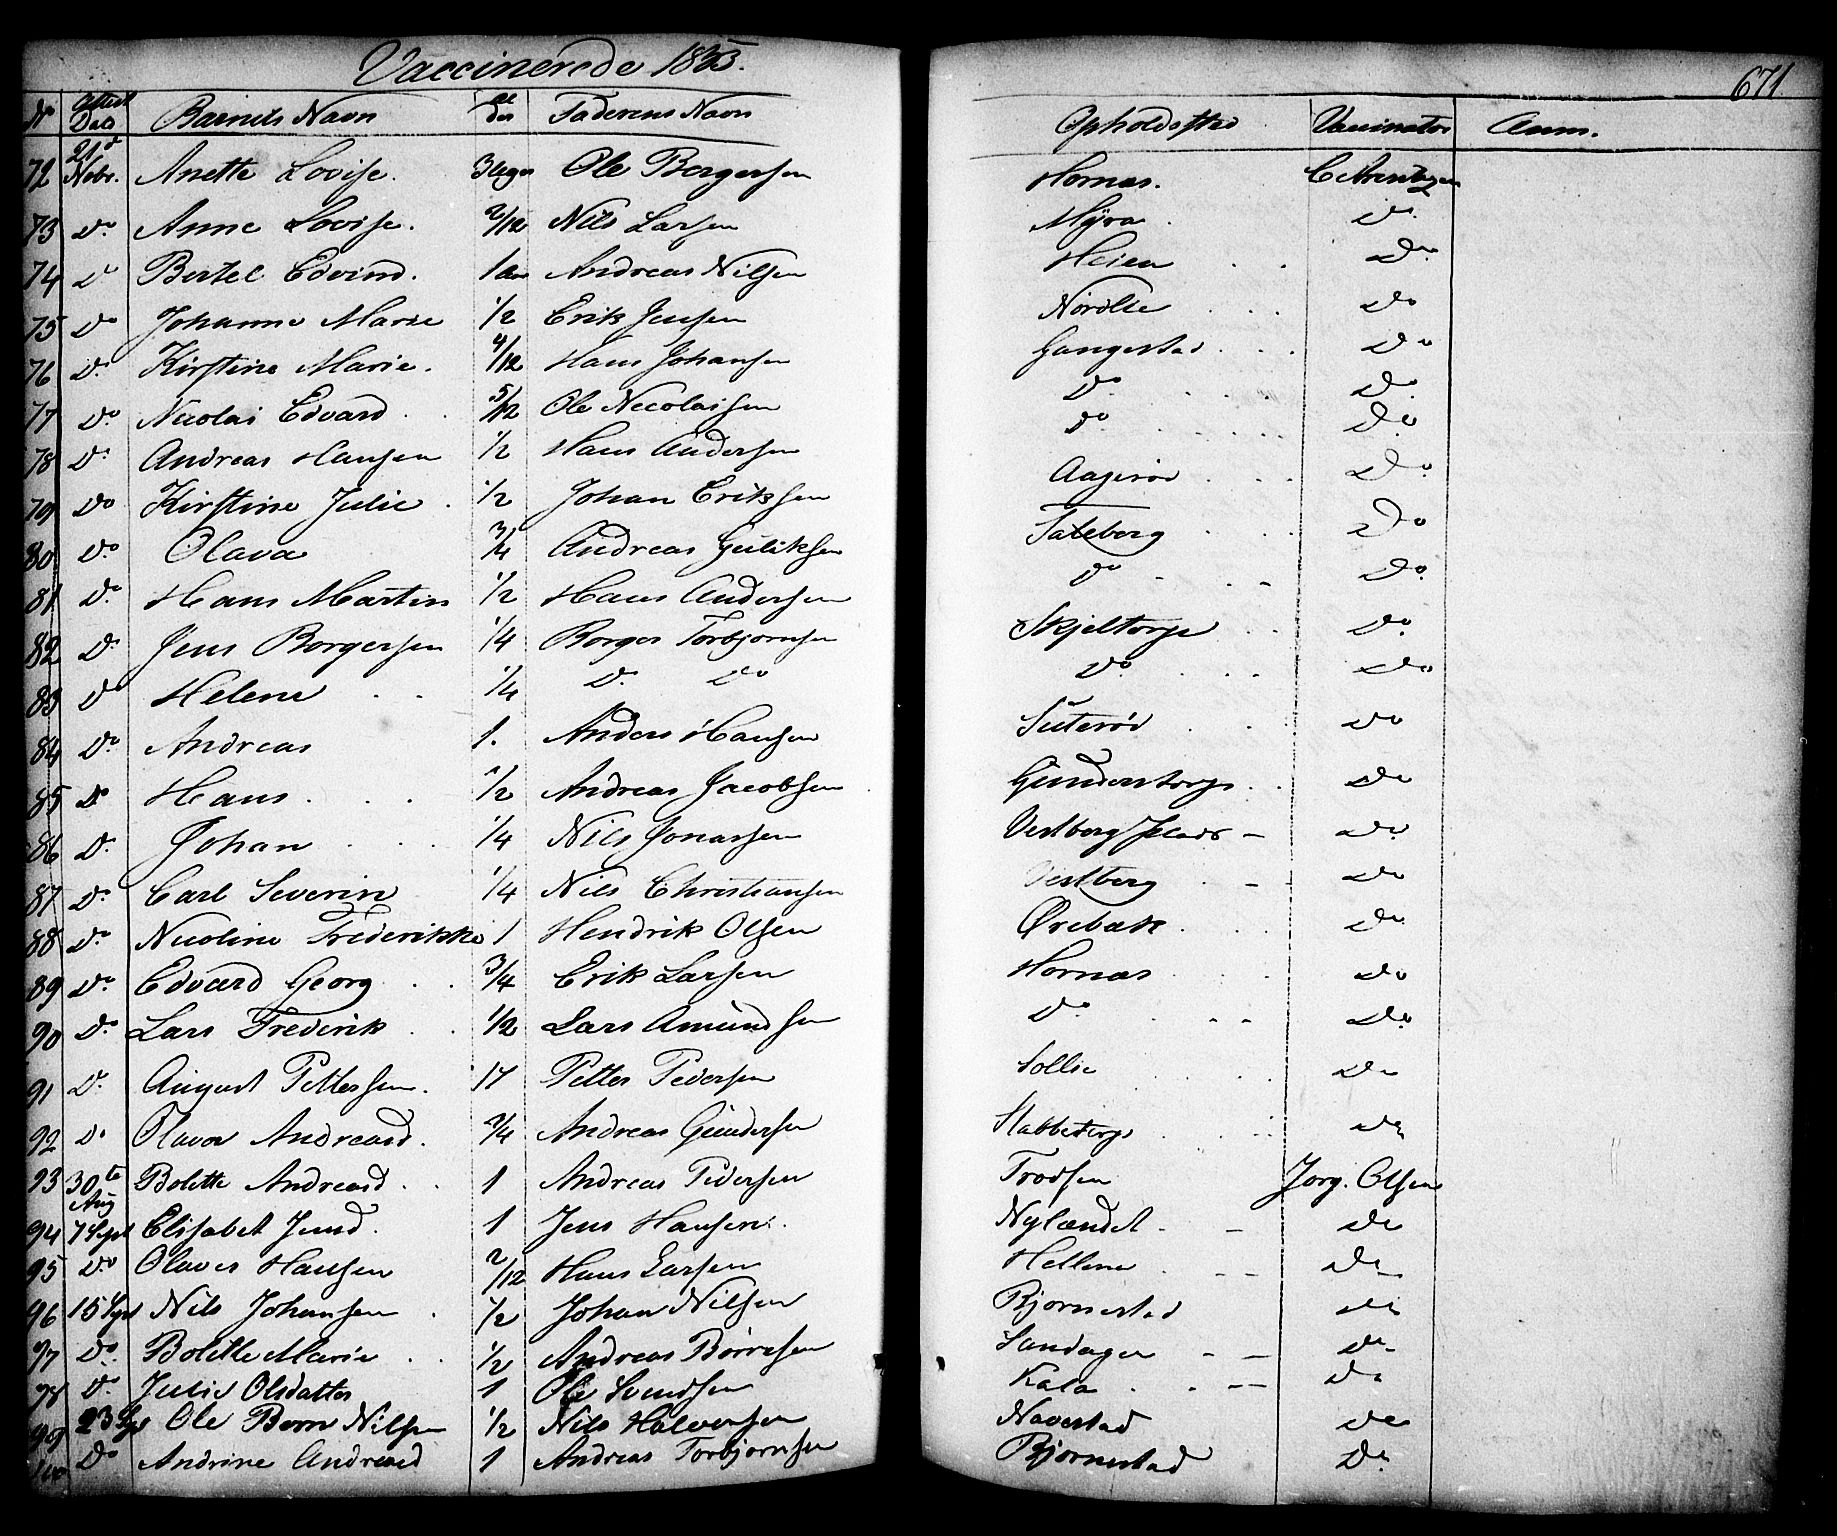 Vaccinerede 1835.
671
No Attest Dato Barnets Navn Alder Faderens Navn Opholdssted Vaccinator Anm.
72 21d Nobr. Anette Lovise. 3 Uger Ole Borgersen Hornæs. C Arentzen
73 Do Anne Lovise. 2/12 Nils Larsen Myra. Do
74 Do Bertel Edvind. 1 Aar Andreas Nilsen Heien Do
75 Do Johanne Marie 1/2 Erik Jensen Nordlie Do
76 Do Kirstine Marie. 4/12 Hans Johansen Gangestad Do
77 Do Nicolai Edvard 5/12 Ole Necolaisen Do Do
78 Do Andreas Hansen 1/2 Hans Andersen Do Do
79 Do Kirstine Julie 1/2 Johan Eriksen Aagerød Do
80 Do Olava 3/4 Andreas Guliksen Sateberg Do
81 Do Hans Martin 1/2 Hans Andersen Do Do
82 Do Jens Borgersen 1/4 Borger Torbjornsen Skjeltorp Do
83 Do Helene 1/4 Do Do Do Do
84 Do Andreas 1. Anders Hansen Suterød Do
85 Do Hans 1/2 Andreas Jacobsen Gunderstorp Do
86 Do Johan 1/4 Nils Jonassen Vestberg Plads Do
87 Do Carl Severin 1/4 Nils Christiansen Vestberg Do
88 Do Nicoline Frederikke 1 Hendrik Olsen Ørebæk Do
89 Do Edvard Georg 3/4 Erik Larsen Hornæs Do
90 Do Lars Frederik 1/2 Lars Amundsen Do Do
91 Do August Pettersen. 17 Petter Pedersen Sollie Do
92 Do Olava Andreasd. 3/4 Andreas Gundersen Stabbetorp Do
93 30te Aug Bolette Andreasd 1 Andreas Pedersen Trodsen Jorg. Olsen
94 7 Sept Elisabet Jensd. 1 Jens Hansen. Nylændet Do
95 Do Olaves Hansen 2/12 Hans Larsen Hellene Do
96 15 Sept Nils Johansen 1/2 Johan Nilsen Bjornestad Do
97 Do Bolette Marie 1/2 Andreas Børresen Sandager Do
98 Do Julie Olsdatter 1 Ole Svendsen Kala Do
99 23 Sep Ole Bern Nilsen 1/2 Nils Halvorsen Navestad Do
100 Do Andrine Andreasd 1 Andreas Torbjornsen Bjornestad Do